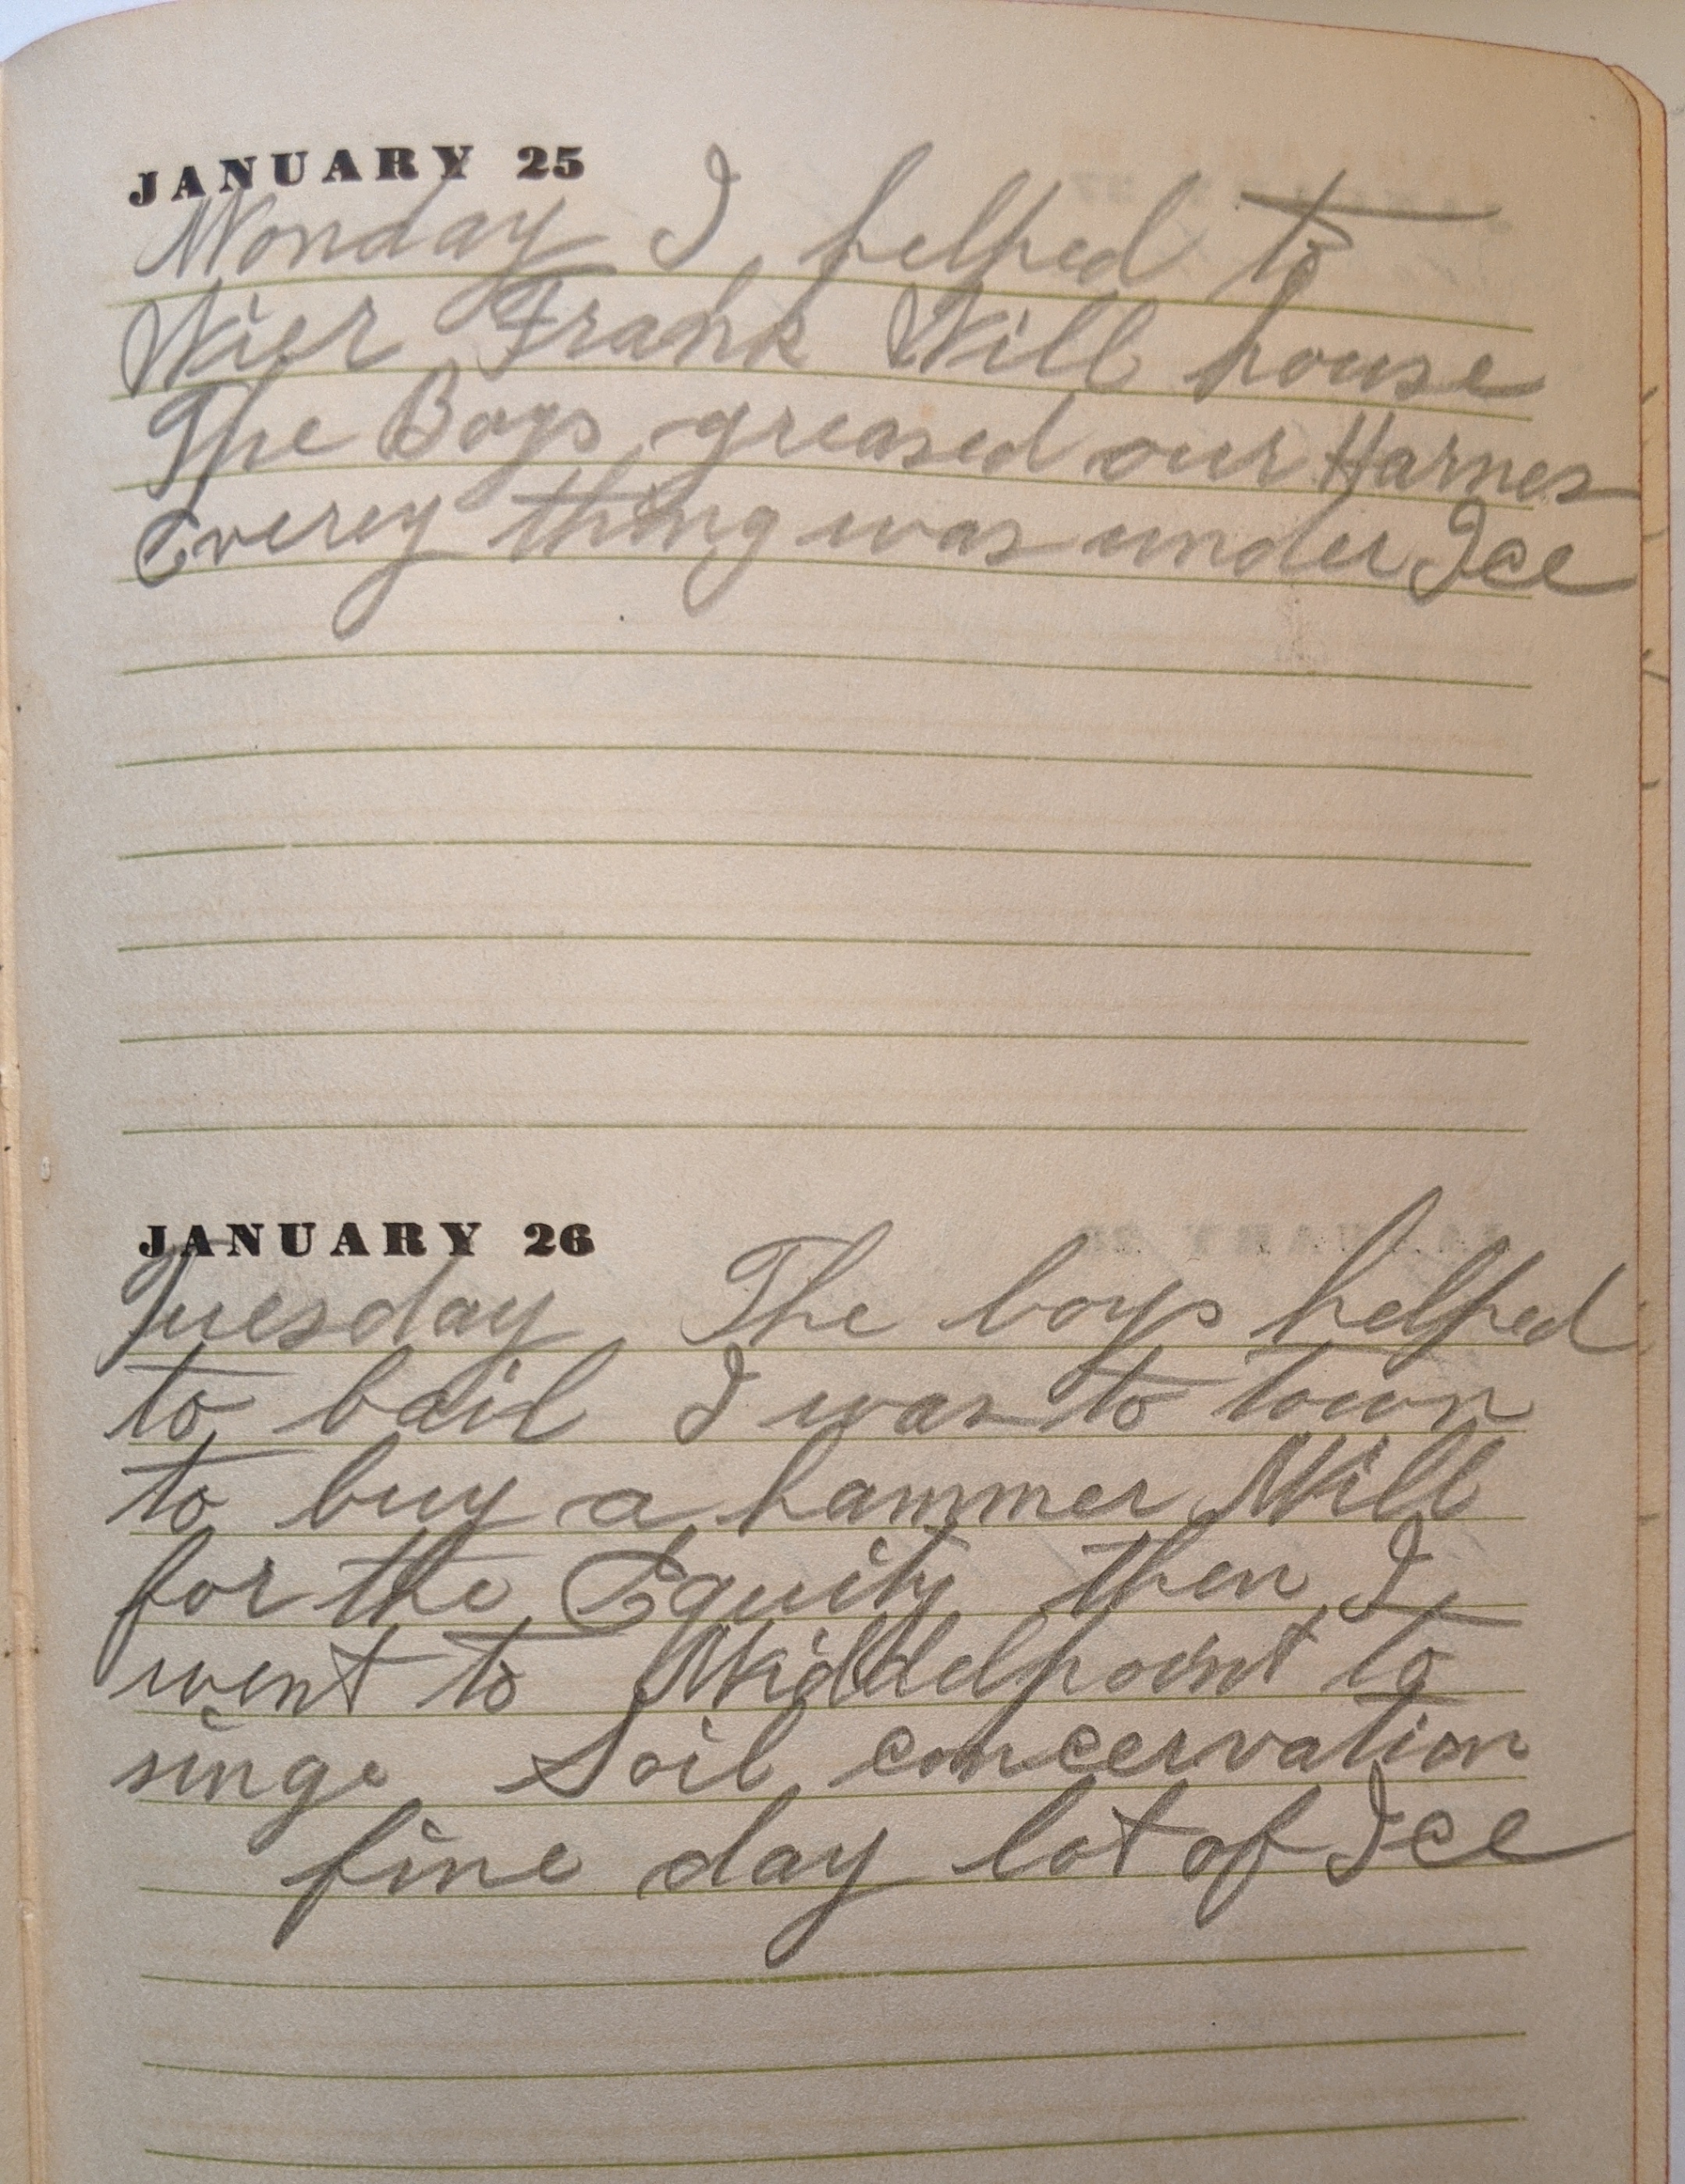 JANUARY 25
Monday I helped to
Wier Frank Will house
The Boys greased our Harnes
Everey thing was under Ice
JANUARY 26
Tuesday The boys helped
to bail I was to town
to buy a hammer Mill
for the Equity then I
went to Middelpoint to
singe Soil concervation
fine day lot of Ice